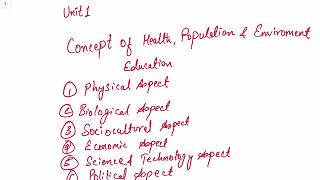 Unit 1
Concept of Health, Population & Enviroment
Education
① Physical Aspect
② Biological Aspect
③ Sociocultural Aspect
④ Economic Aspect
⑤ Science & Technology Aspect
⑥ Political Aspect